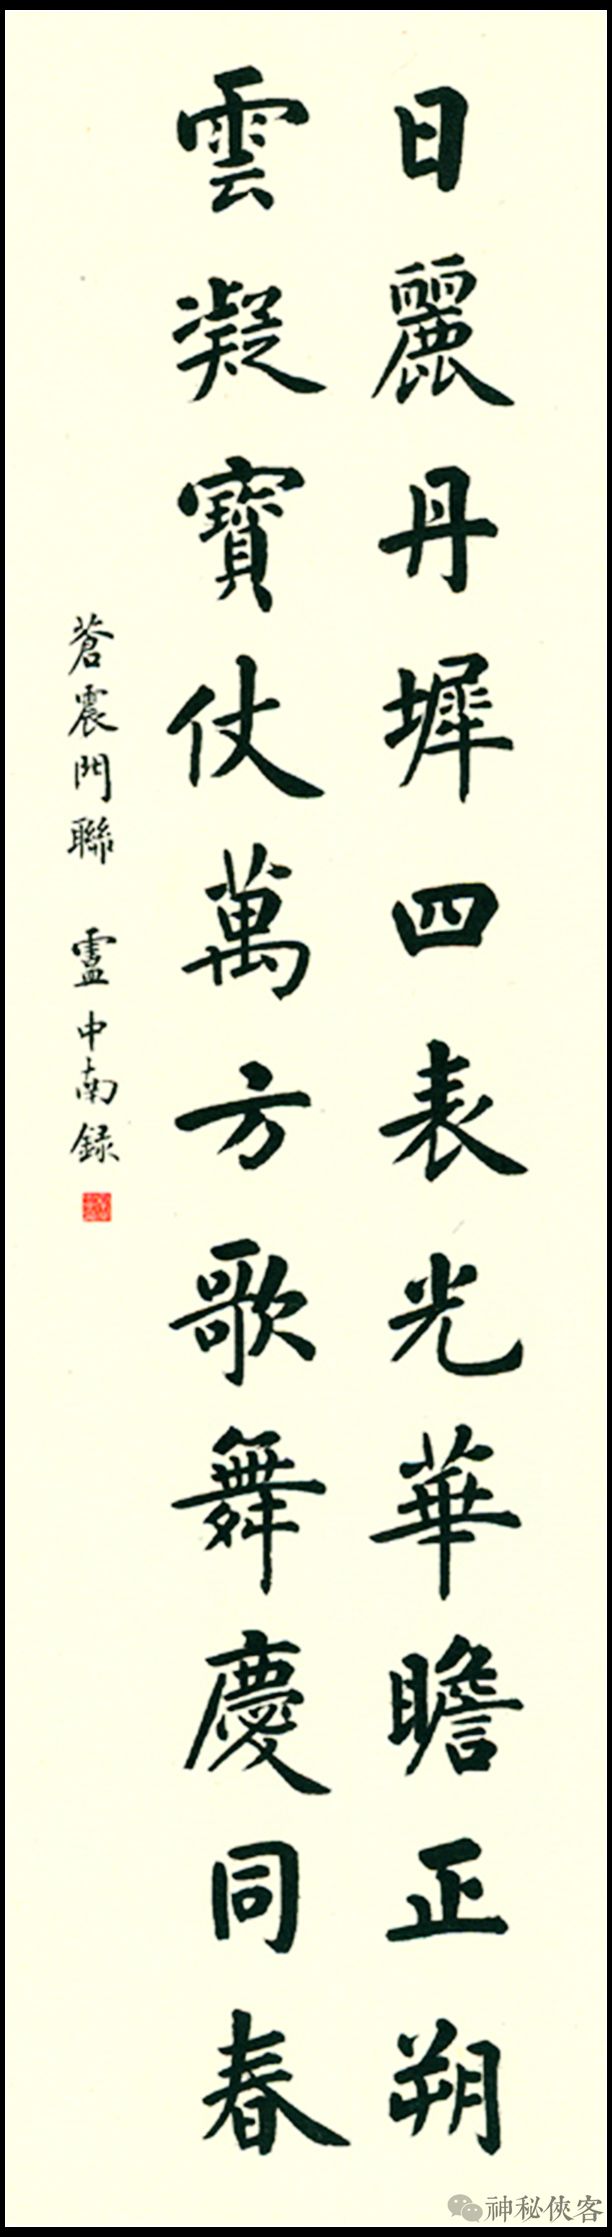 日麗丹墀四表光華瞻正朔
雲凝寶仗萬方歌舞慶同春
蒼震門聯 盧中南錄
神秘俠客